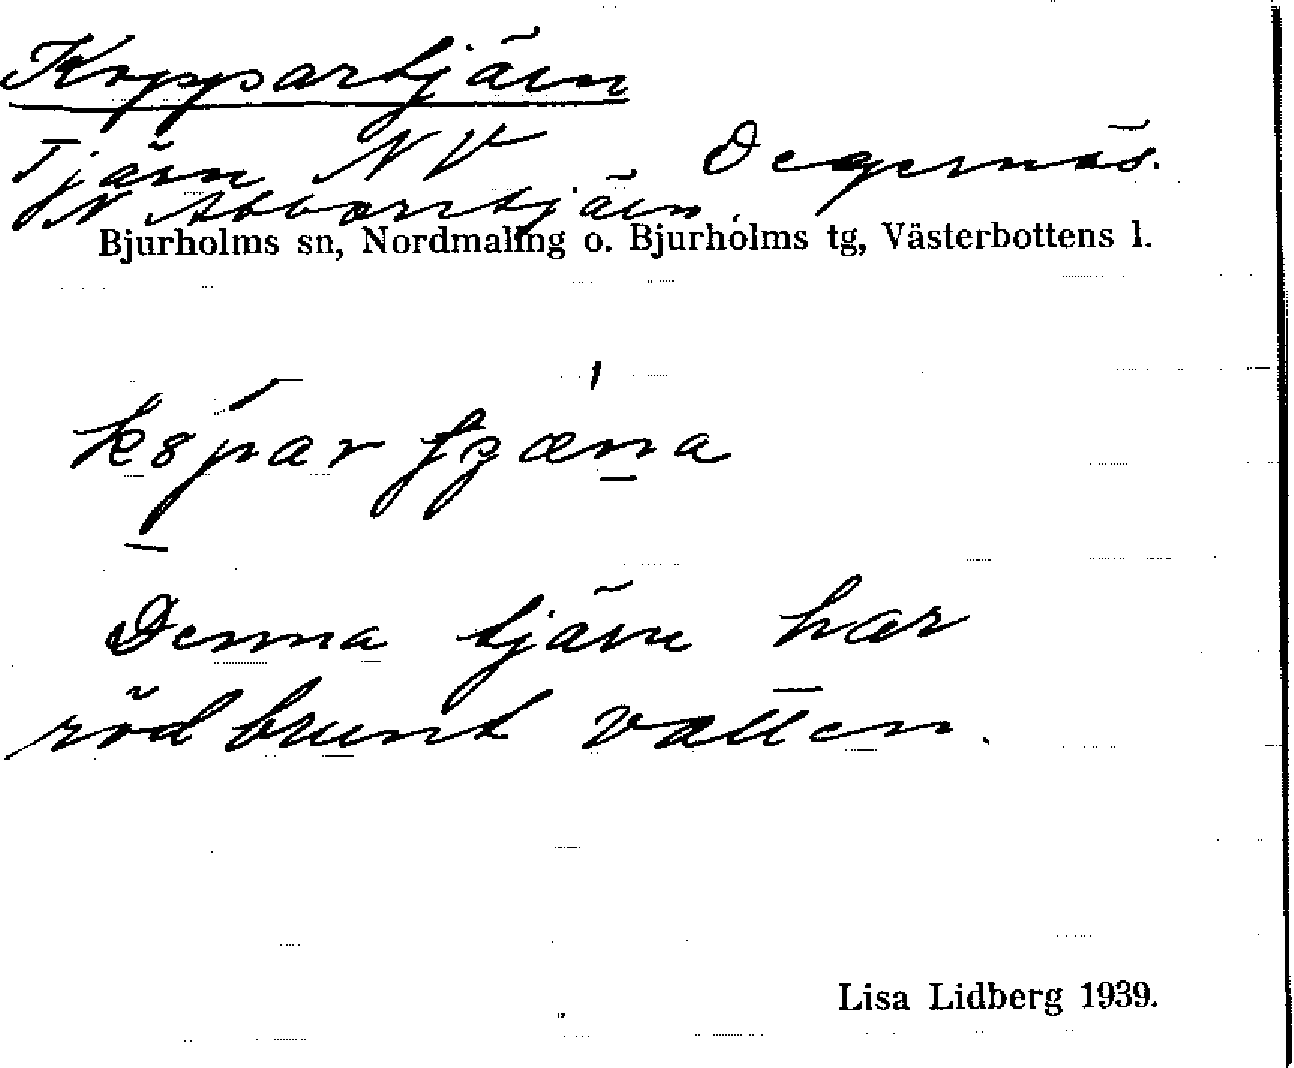 Koppartjärn
Tjärn NV Degernäs.
N Abborrtjärn
Bjurholms sn, Nordmaling o. Bjurholms tg, Västerbottens l.
Denna tjärn har
rödbrunt vatten.
Lisa Lidberg 1939.